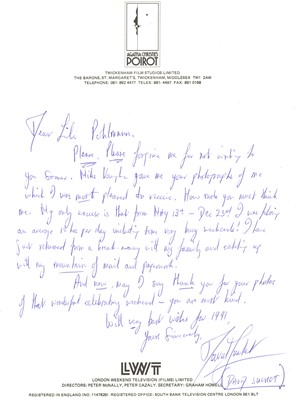 AGATHA CHRISTIE'S
POIROT
TWICKENHAM FILM STUDIOS LIMITED
THE BARONS, ST. MARGARET'S, TWICKENHAM, MIDDLESEX TW1 2AW
TELEPHONE: 081 892 4477 TELEX: FAX: 891 0168
Dear Lili Pohlmann.
Please, Please forgive me for not writing to
you sooner. Mike Vaughn gave me your photographs of me
which I was most pleased to receive. How rude you must think
me. My only excuse is that from May 13th - Dec 23rd I was filming
an average per day including very busy weekends! I have
just returned from a break away with my family and catching up
with my mountain of mail and paperwork.
And now, may I say thank you for your photos
of that wonderful celebrating weekend - you are most kind.
With very best wishes for 1991.
Yours Sincerely,
David Suchet
(DAVID SUCHET)
LWT
LONDON WEEKEND TELEVISION (FILMS) LIMITED
DIRECTORS: PETER McNALLY, PETER CAZALY, SECRETARY: GRAHAM HOWELL
REGISTERED IN ENGLAND (NO. REGISTERED OFFICE: SOUTH BANK TELEVISION CENTRE LONDON SE1 9LT